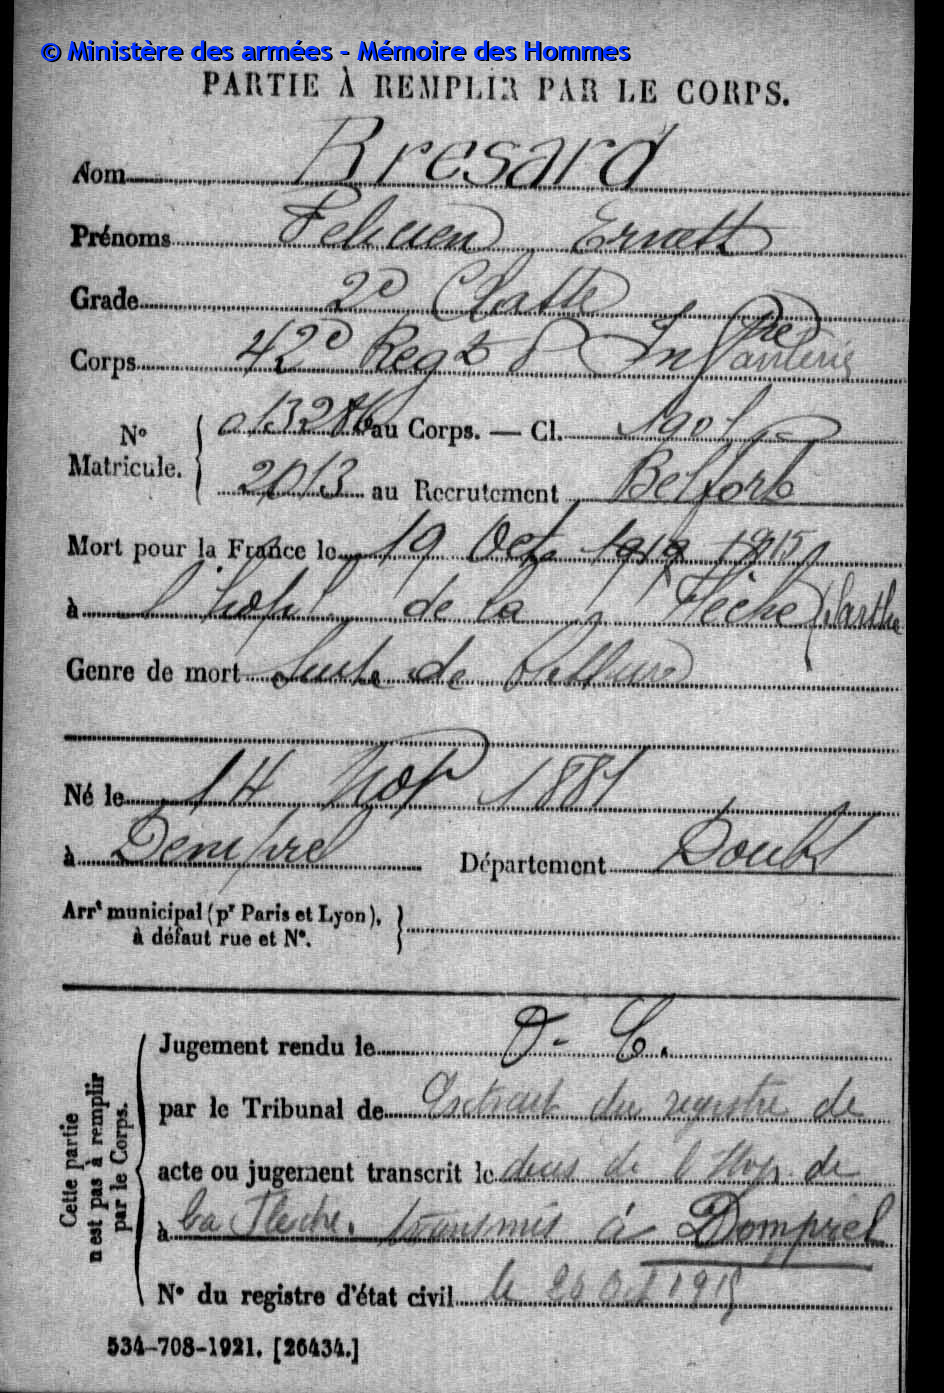 © Ministère des armées - Mémoire des Hommes
PARTIE À REMPLIR PAR LE CORPS.
Nom Bresard
Prénoms Felicien Ernest
Grade 2e Classe
Corps 42e Regt d'Infanterie
N° Matricule. { 013286 au Corps. — Cl. 1901
2013 au Recrutement Belfort
Mort pour la France le 19 Oct. 1919 1915
à l'hopl de la Flèche (Sarthe
Genre de mort Suite de Blessures
Né le 14 1881
à Demprel Département Doubs
Arrt municipal (pr Paris et Lyon),
à défaut rue et N°.
Cette partie
n'est pas à remplir
par le Corps.
Jugement rendu le D. C.
par le Tribunal de Extrait du registre de
acte ou jugement transcrit le deces de l'Hop. de
à La Fleche. transmis à Domprel
N° du registre d'état civil le 24 Oct 1915
534-708-1921. [26434.]